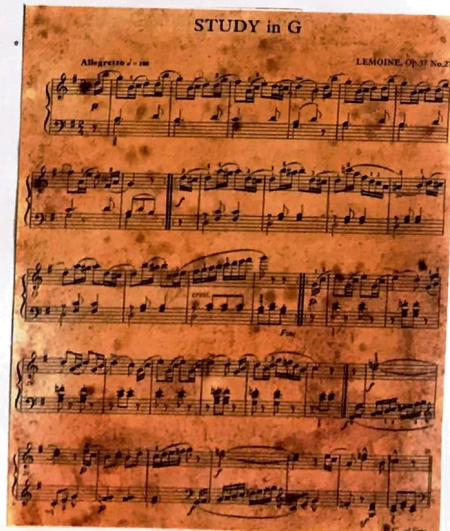 STUDY in G
Allegretto ♩ = 100
LEMOINE, Op.37 No.27
p
f
cresc.
Fine
p
f
p
f
p